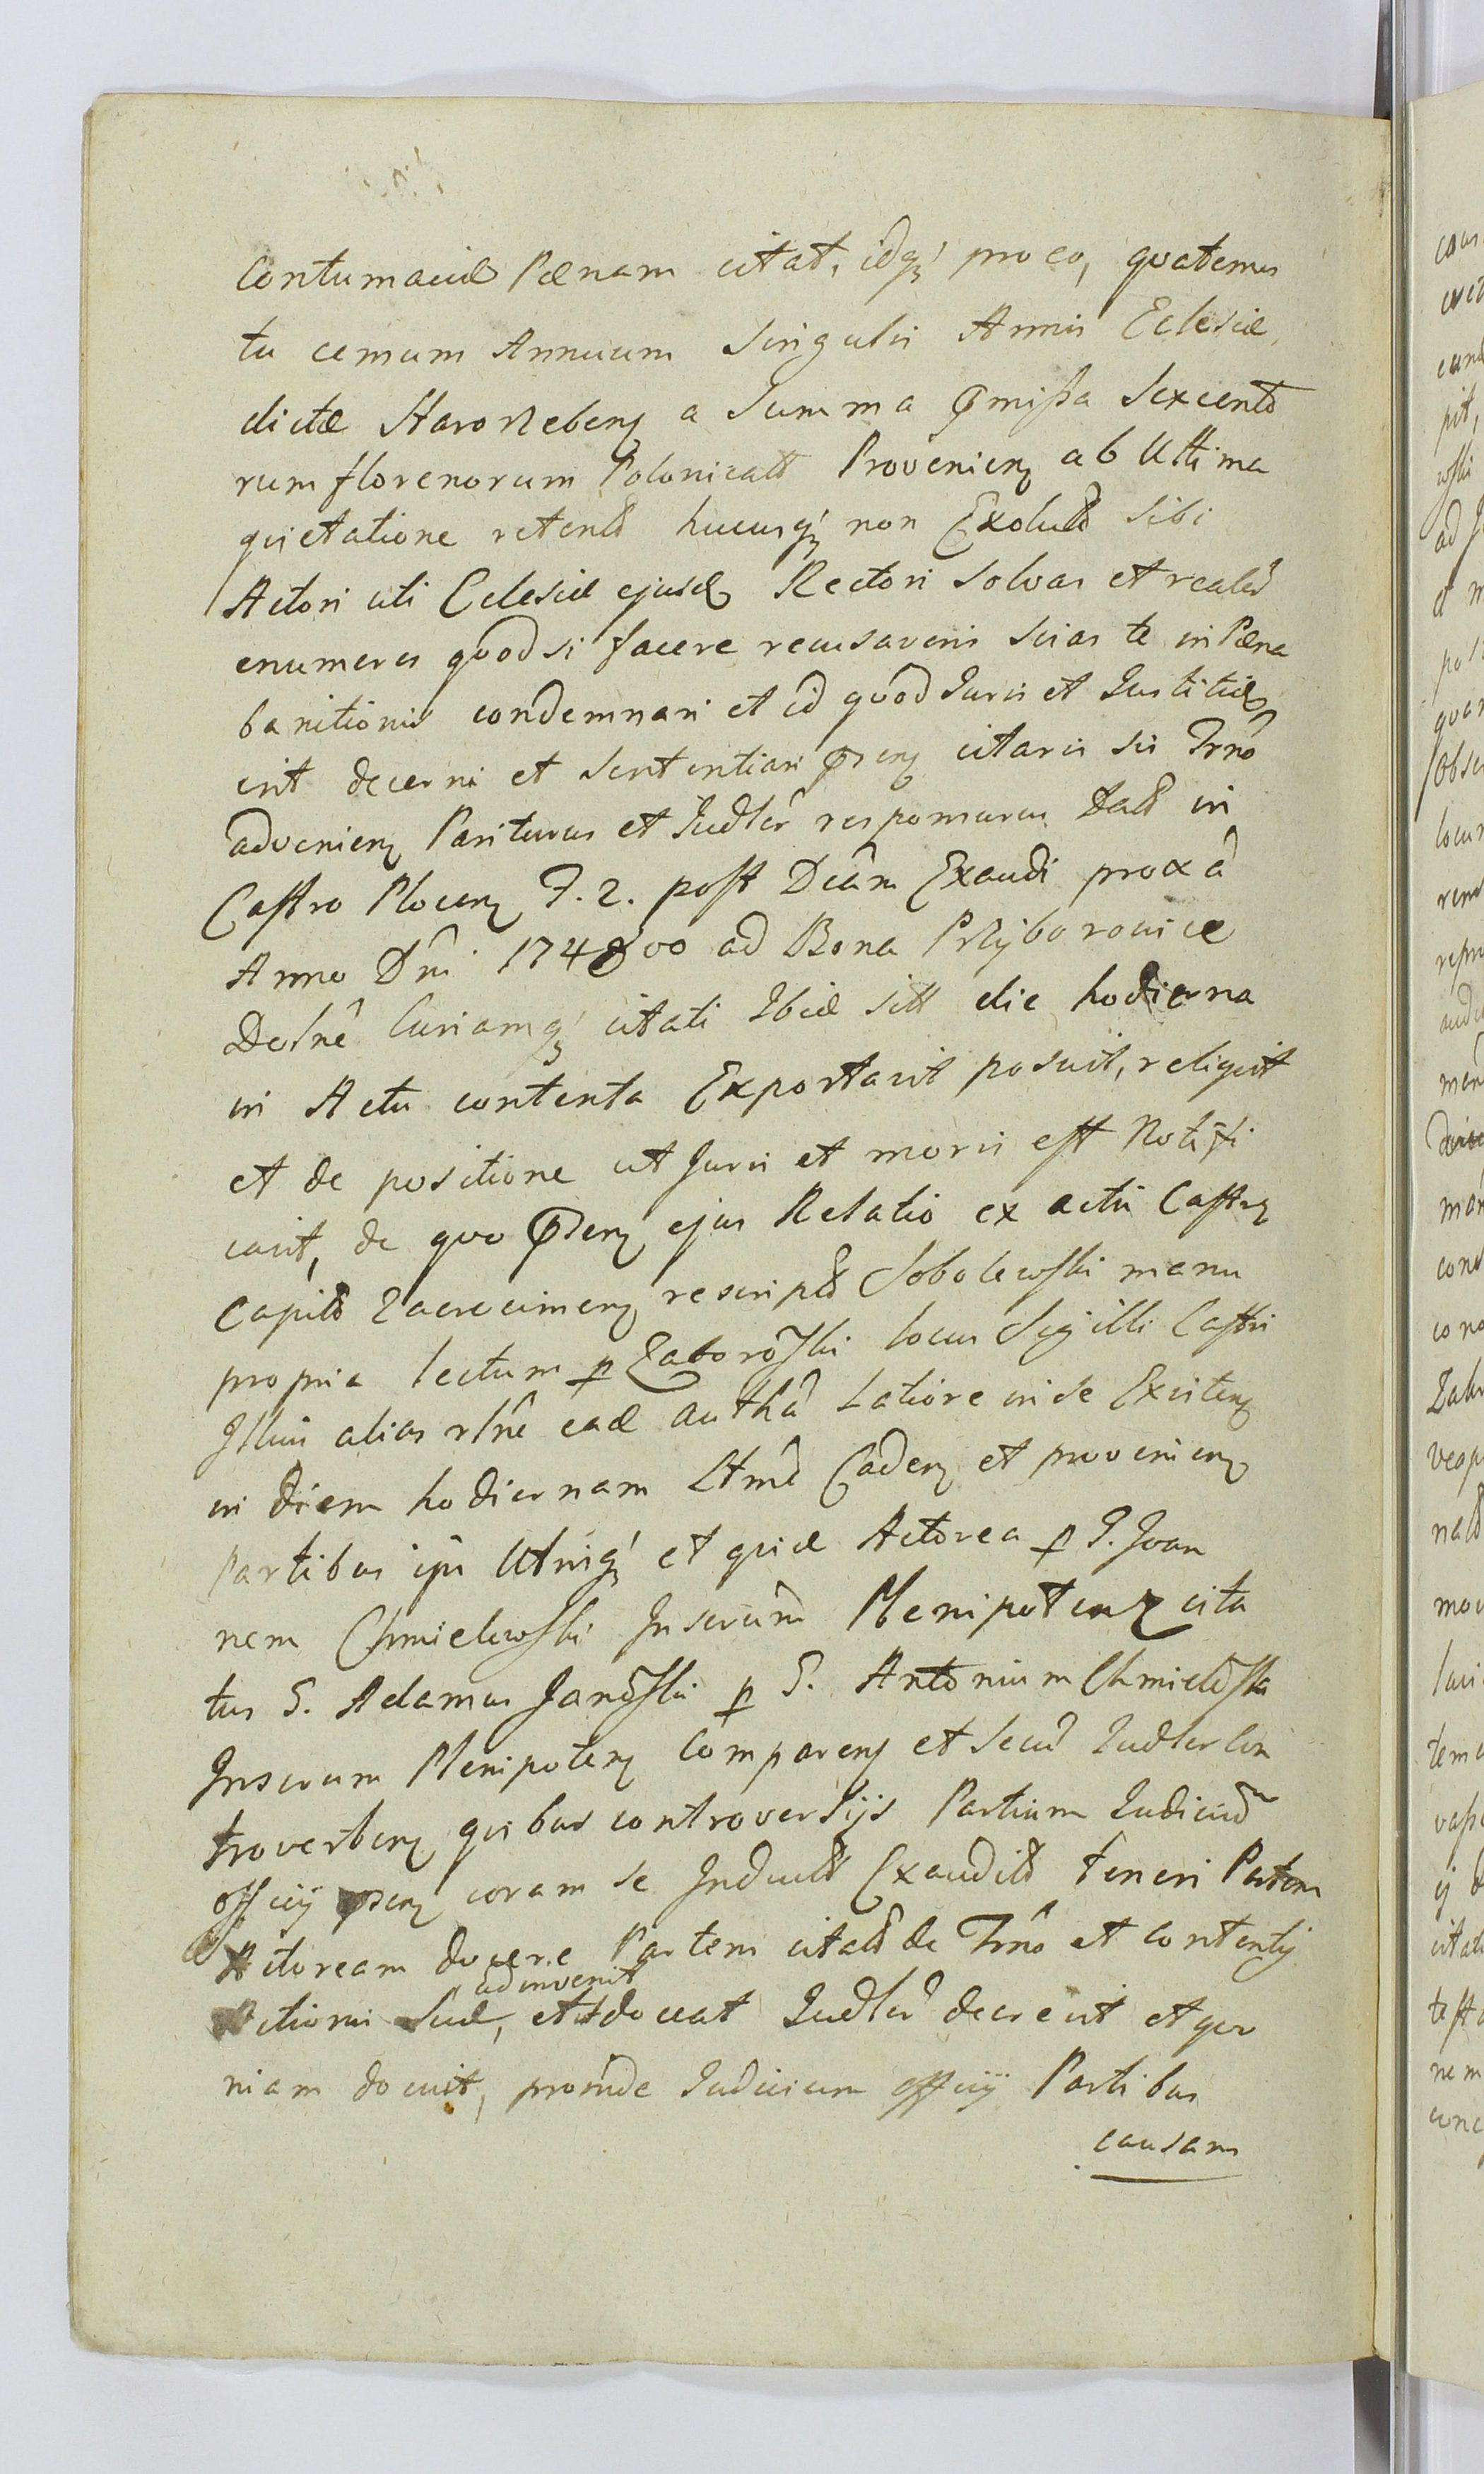 Contumaciæ Pœnam citat, idq; pro eo, quatenus
tu censum Annuum Singulis Annis Eclesiæ
dictæ Starorzebens a Summa præmissa Sexcento
rum florenorum Polonicall Provenien ab Ultima
quietatione retent hucusq; non Exolut Sibi
Actori uti Eclesiæ ejusd Rectori Solvas et realr
enumeres quod si facere recusaveris Scias te in Pœna
banitionis condemnari et id quod Juris et Justitiæ
erit decerni et Sententiari præsen citaris sis Trno
advenien Pariturus et Judlr responsurus Datt in
Castro Plocen F. 2. post Dcam Exaudi proxa
Anno Dni 1748 oo ad Bona Przyborowice
Dosne Curiamq; citati Ibid sitt die hodierna
in Actu contenta Exportavit posuit, reliquit
et de positione ut Juris et moris est Notifi
cavit, de quo præsen ejus Relatio ex actis Castren
Capitt Zacrocimen rescript Sobolewski manu
propria lectum p Zaborôski locus Sigilli Castri
Illius alias rlne ead autha Latiore in se Exciten
in diem hodiernam Lttme Caden et provenien
Partibus ipsis Utrisq; et quid Actorea p G. Joan
nem Chmielewski Inserum Plenipoten cita
tus G. Adamus Janôski p G. Antonium Chmielôski
Inserum Plenipoten Comparen et Secu Judler Con
troverten quibus controversijs Partium Judicium
officij præsen coram se Induct Exaudit teneri Partem
Actoream docere Partem citatt de Trno et contentis
adinvenit
Actionis Suæ, et ut doceat Judlr decrevit et quo
niam docuit, proinde Judicium officij Partibus
causam